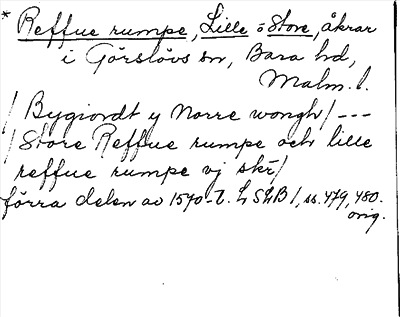 * Reffue rumpe, Lille o Store, åkrar
i Görslövs sn, Bara hd,
Malm. l.
/ Bygiordt y Norre wongh / ---
/ Store Reffue rumpe och lille
reffue rumpe vj skr /
förra delen av 1570-t. LSLB 1, ss. 479, 480.
orig.